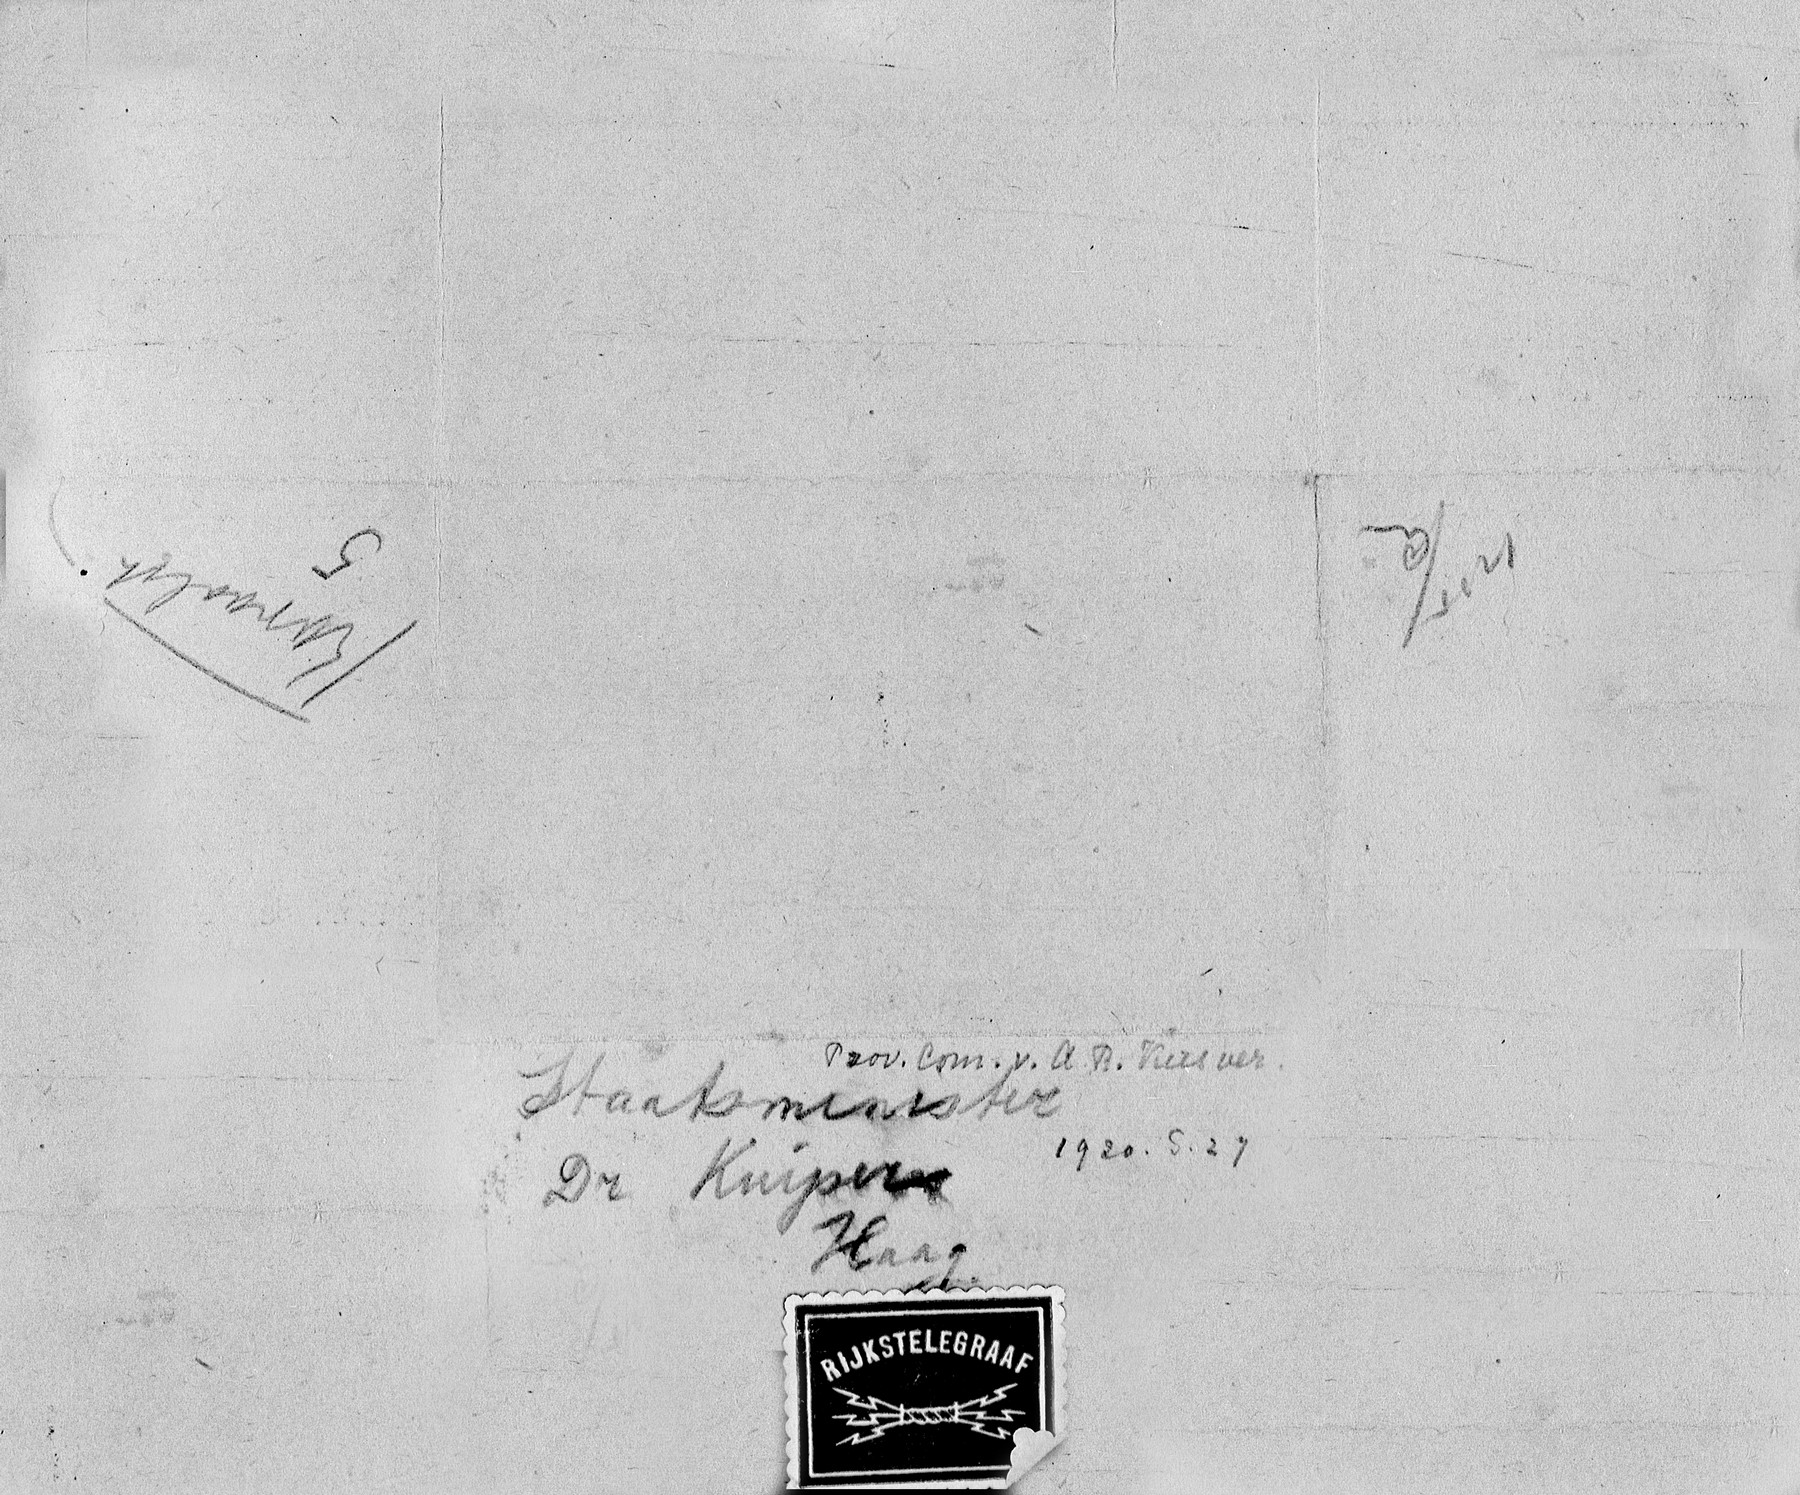 5
Prov. Com. v. A R. Kiesver.
Staatsminister
1920. 5. 27
Dr Kuiper
Haag.
RIJKSTELEGRAAF